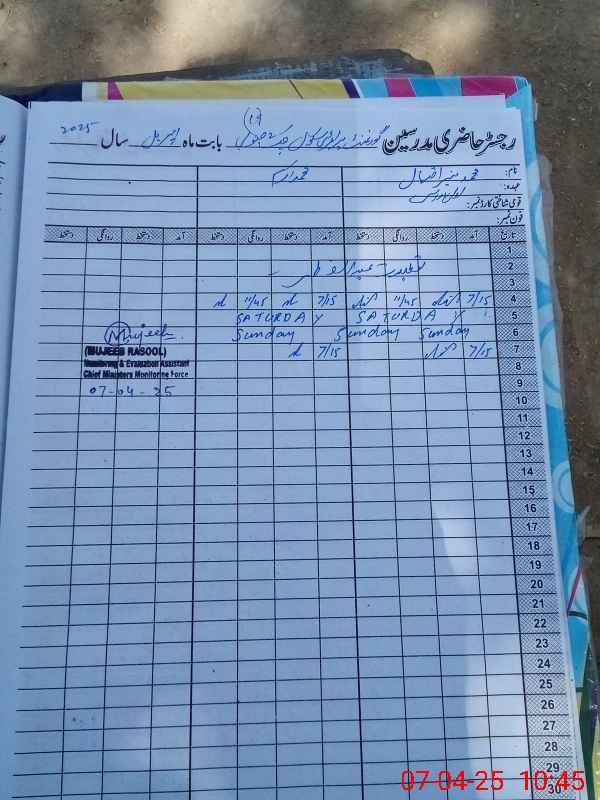 (1)
رجسٹر حاضری مدرسین گورنمنٹ پرائمری سکول بابت ماہ اپریل سال 2025
نام: محمد منیر اقبال محمد اکرم
عہدہ:
قومی شناختی کارڈ نمبر:
فون نمبر:
تاریخ آمد دستخط روانگی دستخط آمد دستخط روانگی دستخط آمد دستخط روانگی دستخط
1
2 تعطیلات عید الفطر
3
4 7/15 11/45 7/15 11/45
5 SATURDAY SATURDAY
6 Sunday Sunday Sunday
7 7/15 7/15
8
9
10
11
12
13
14
15
16
17
18
19
20
21
22
23
24
25
26
27
28
29
30
Mujeeb
(MUJEEB RASOOL)
Monitoring & Evaluation Assistant
Chief Ministers Monitoring Force
07-04-25
07-04-25 10:45